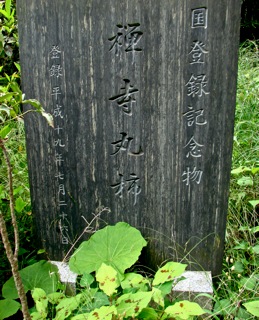 国登録記念物
禅寺丸柿
登録平成十九年七月二十六日